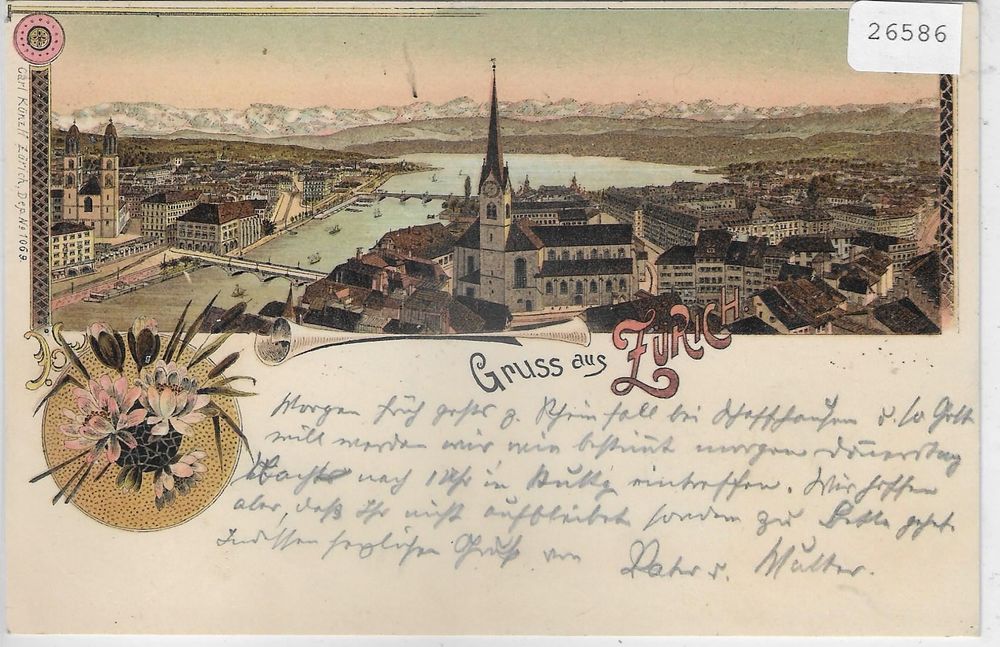 26586
Carl Künzli Zürich, Dep. No 1069.
Gruss aus ZÜRICH
Morgen früh gehts z. Rheinfall bei Schaffhausen u. so Gott
will werden wir wie bestimt morgen Donerstag
Nachts nach 1 Uhr in Stuttg eintreffen. Wir hoffen
aber, daß Ihr nicht aufbleibet sondern zu Bette gehet.
Indessen herzlichen Gruß von Vater u. Mutter.